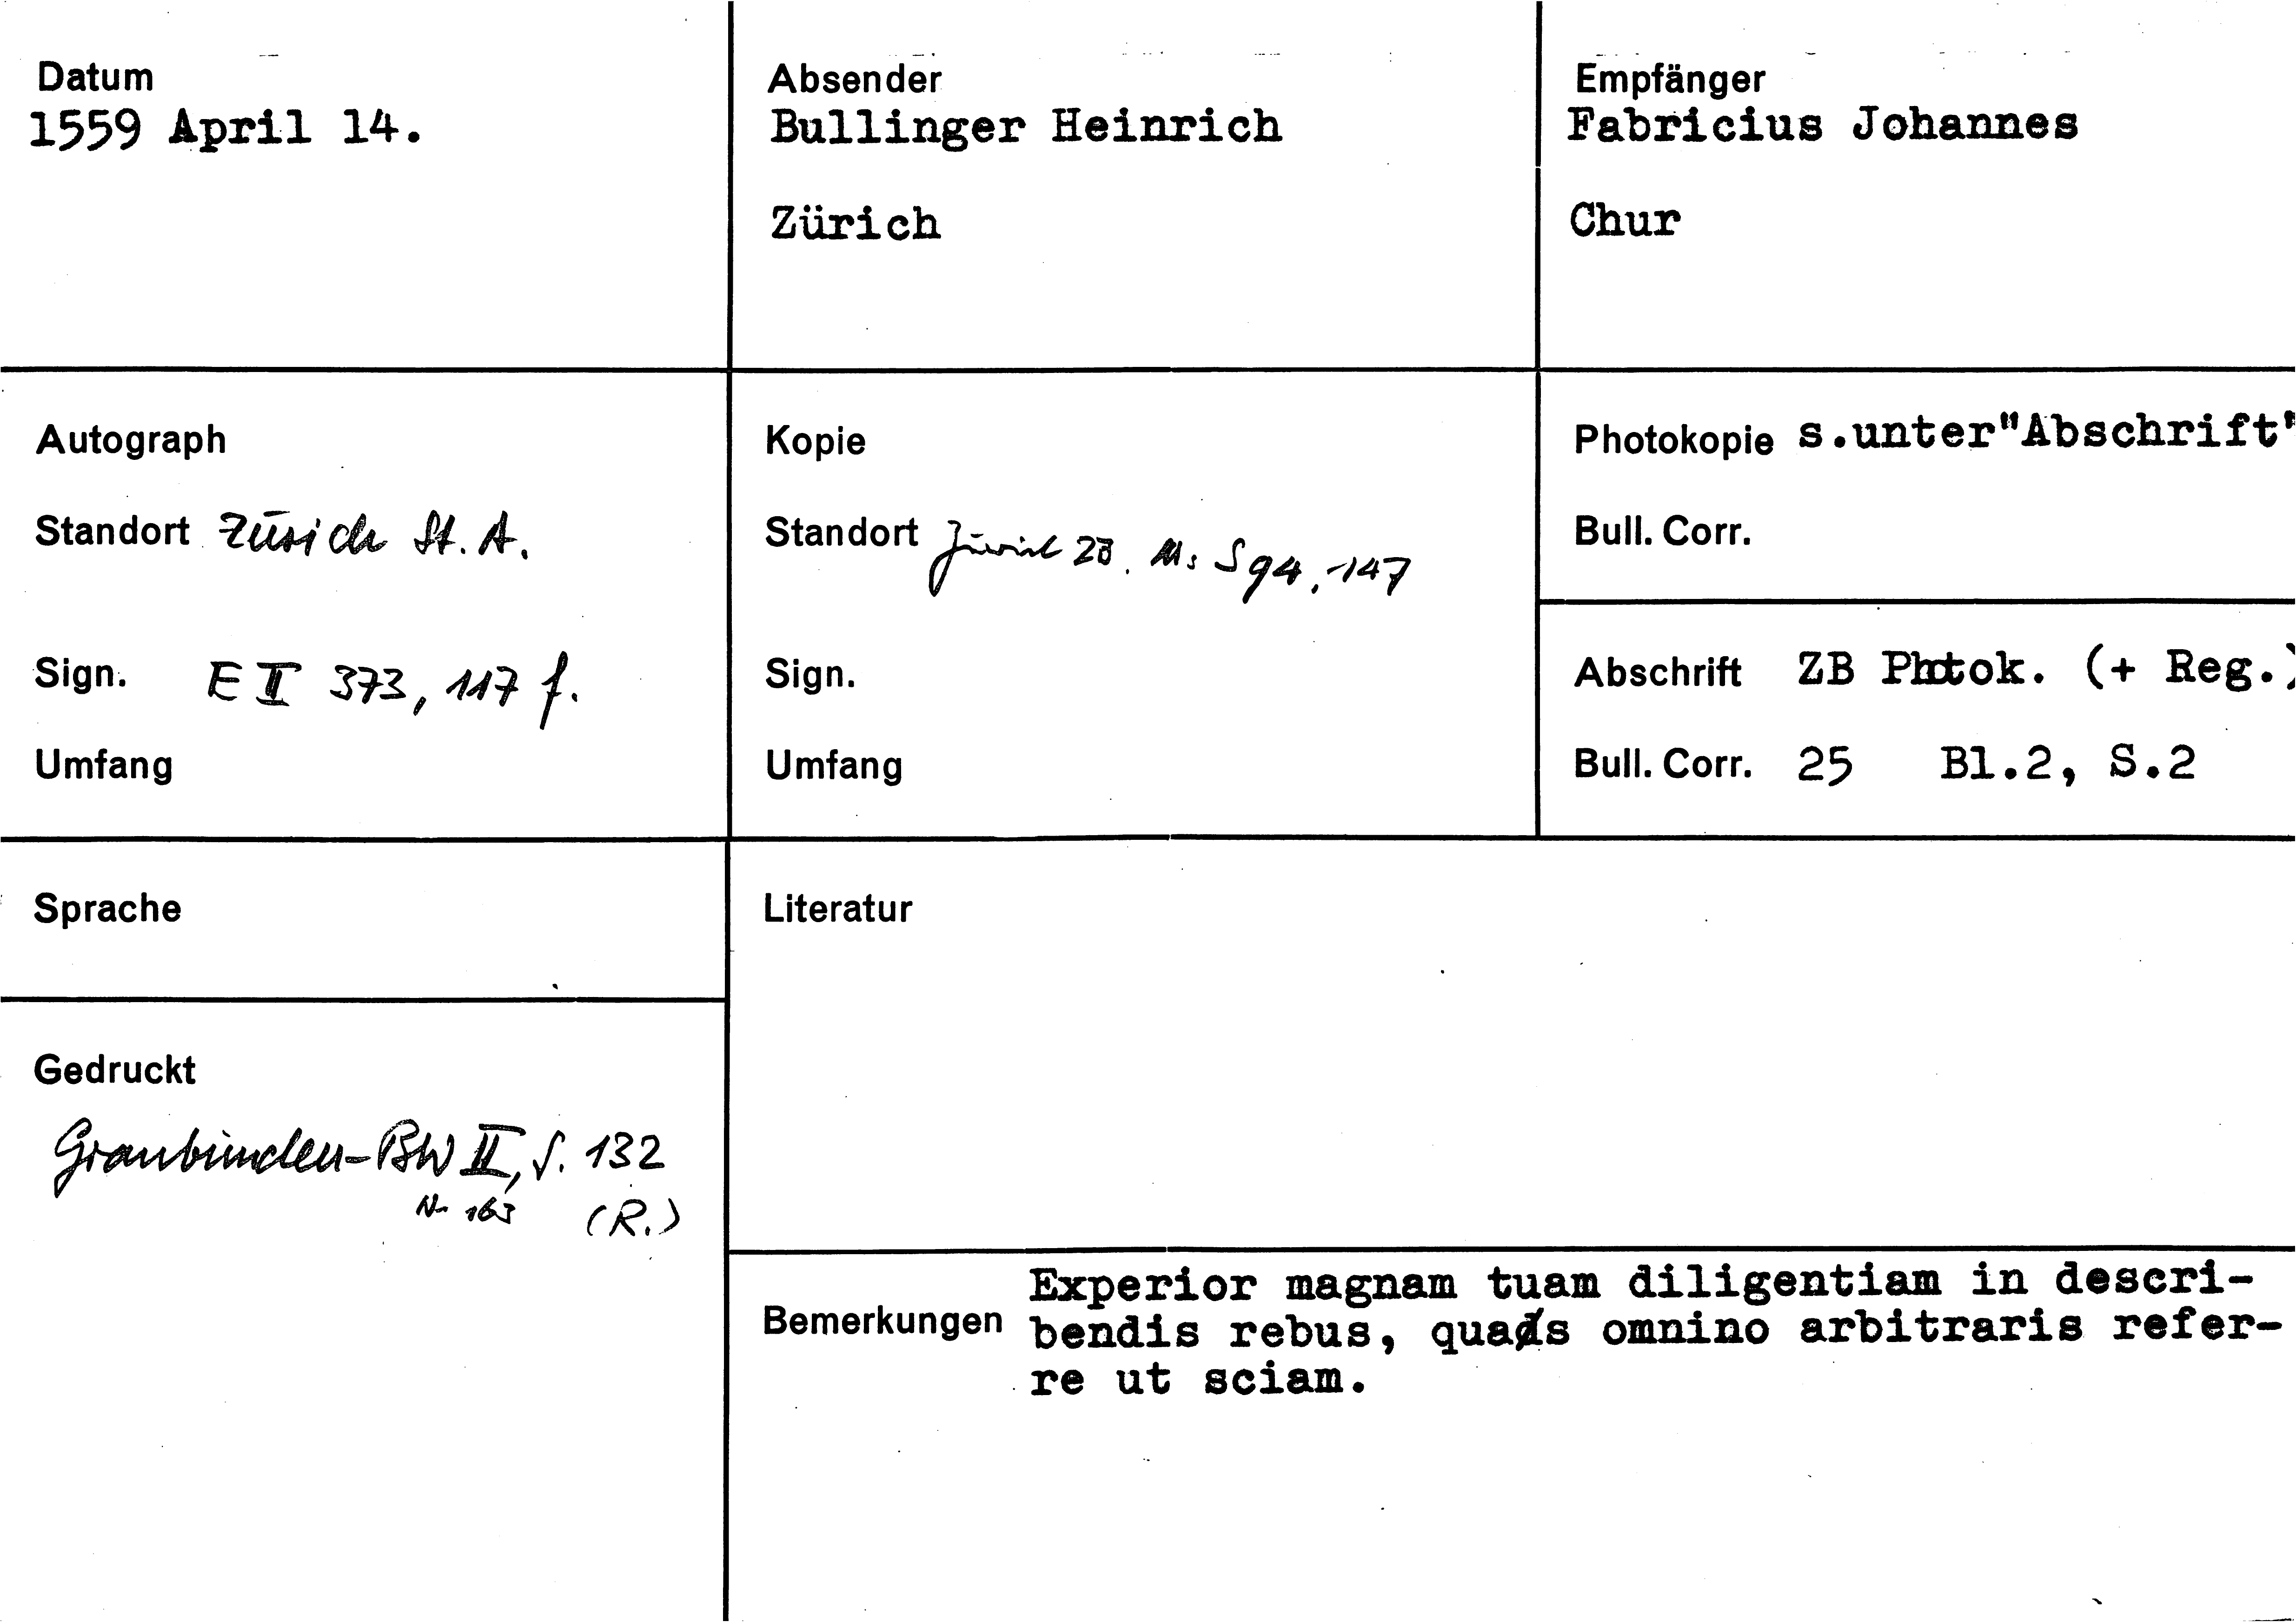 Datum
1559 April 14.
Absender
Bullinger Heinrich
Zürich
Empfänger
Fabricius Johannes
Chur
Autograph
Standort Zürich St. A.
Sign. E II 373, 117 f.
Umfang
Kopie
Standort Zürich ZB. Ms S 94, 147
Sign.
Umfang
Photokopie s.unter"Abschrift"
Bull. Corr.
Abschrift ZB Photok. (+ Reg.)
Bull. Corr. 25 Bl.2, S.2
Sprache
Gedruckt
Graubünden-BW II, S. 132
Nr. 163 (R.)
Literatur
Bemerkungen
Experior magnam tuam diligentiam in descri-
bendis rebus, quas omnino arbitraris refer-
re ut sciam.